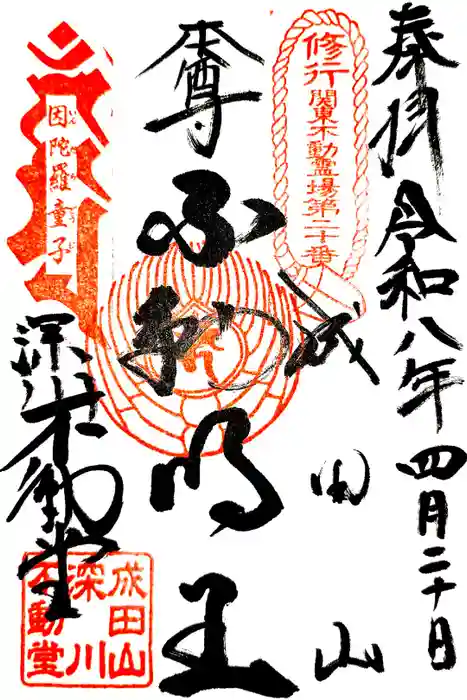 奉拝 令和八年四月二十日
修行
関東不動霊場第二十番
成田山
本尊 不動明王
因陀羅童子
いんだらどうじ
深川不動堂
成田山
深川
不動堂